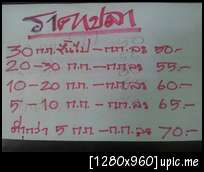 ราคาปลา
30 ก.ก. ขึ้นไป - ก.ก.ละ 50.-
20-30 ก.ก - ก.ก.ละ 55.-
10-20 ก.ก - ก.ก.ละ 60.-
5-10 ก.ก. - ก.ก.ละ 65.-
ต่ำกว่า 5 ก.ก - ก.ก.ละ 70.-
[1280x960] upic.me